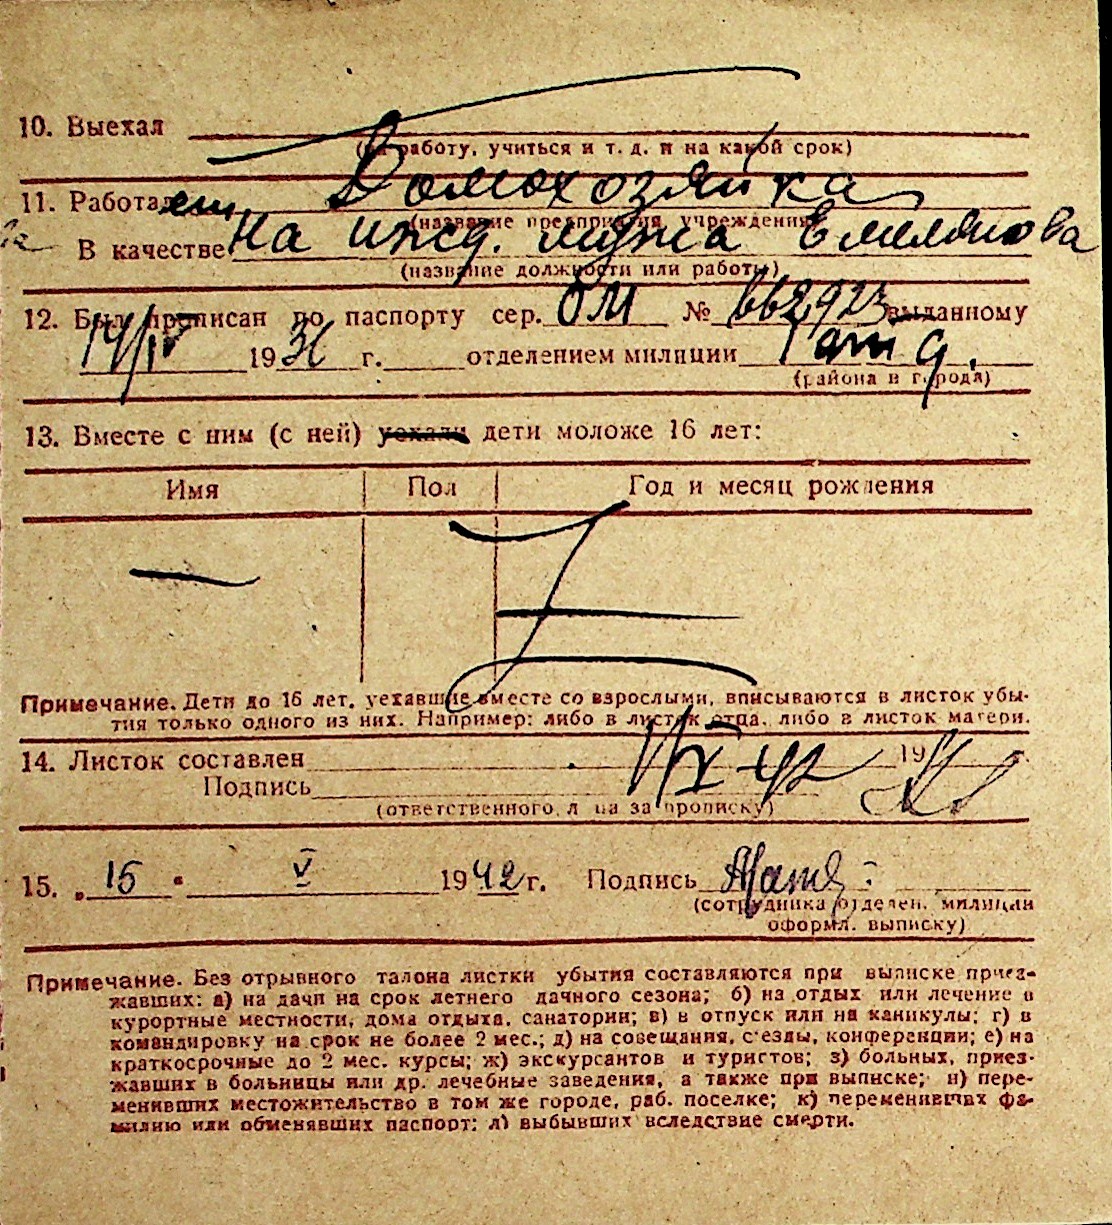 10. Выехал
(на работу, учиться и т. д. и на какой срок)
11. Работает Домохозяйка
(название предприятия, учреждения)
В качестве На ижд. мужа Емельянова
(название должности или работы)
12. Был прописан по паспорту сер. ОМ № 662923 выданному
14/IV 1936 г. отделением милиции Гатч.
(района и города)
13. Вместе с ним (с ней) уехали дети моложе 16 лет:
Имя Пол Год и месяц рождения
—
Примечание. Дети до 16 лет, уехавшие вместе со взрослыми, вписываются в листок убы-
тия только одного из них. Например: либо в листок отца, либо в листок матери.
14. Листок составлен 19 г.
Подпись
(ответственного лица за прописку)
15. „15“ V 1942 г. Подпись
(сотрудника отделен. милиции
оформл. выписку)
Примечание. Без отрывного талона листки убытия составляются при выписке приез-
жавших: а) на дачи на срок летнего дачного сезона; б) на отдых или лечение в
курортные местности, дома отдыха, санатории; в) в отпуск или на каникулы; г) в
командировку на срок не более 2 мес.; д) на совещания, с'езды, конференции; е) на
краткосрочные до 2 мес. курсы; ж) экскурсантов и туристов; з) больных, приез-
жавших в больницы или др. лечебные заведения, а также при выписке; и) пере-
менивших местожительство в том же городе, раб. поселке; к) переменивших фа-
милию или обменявших паспорт; л) выбывших вследствие смерти.